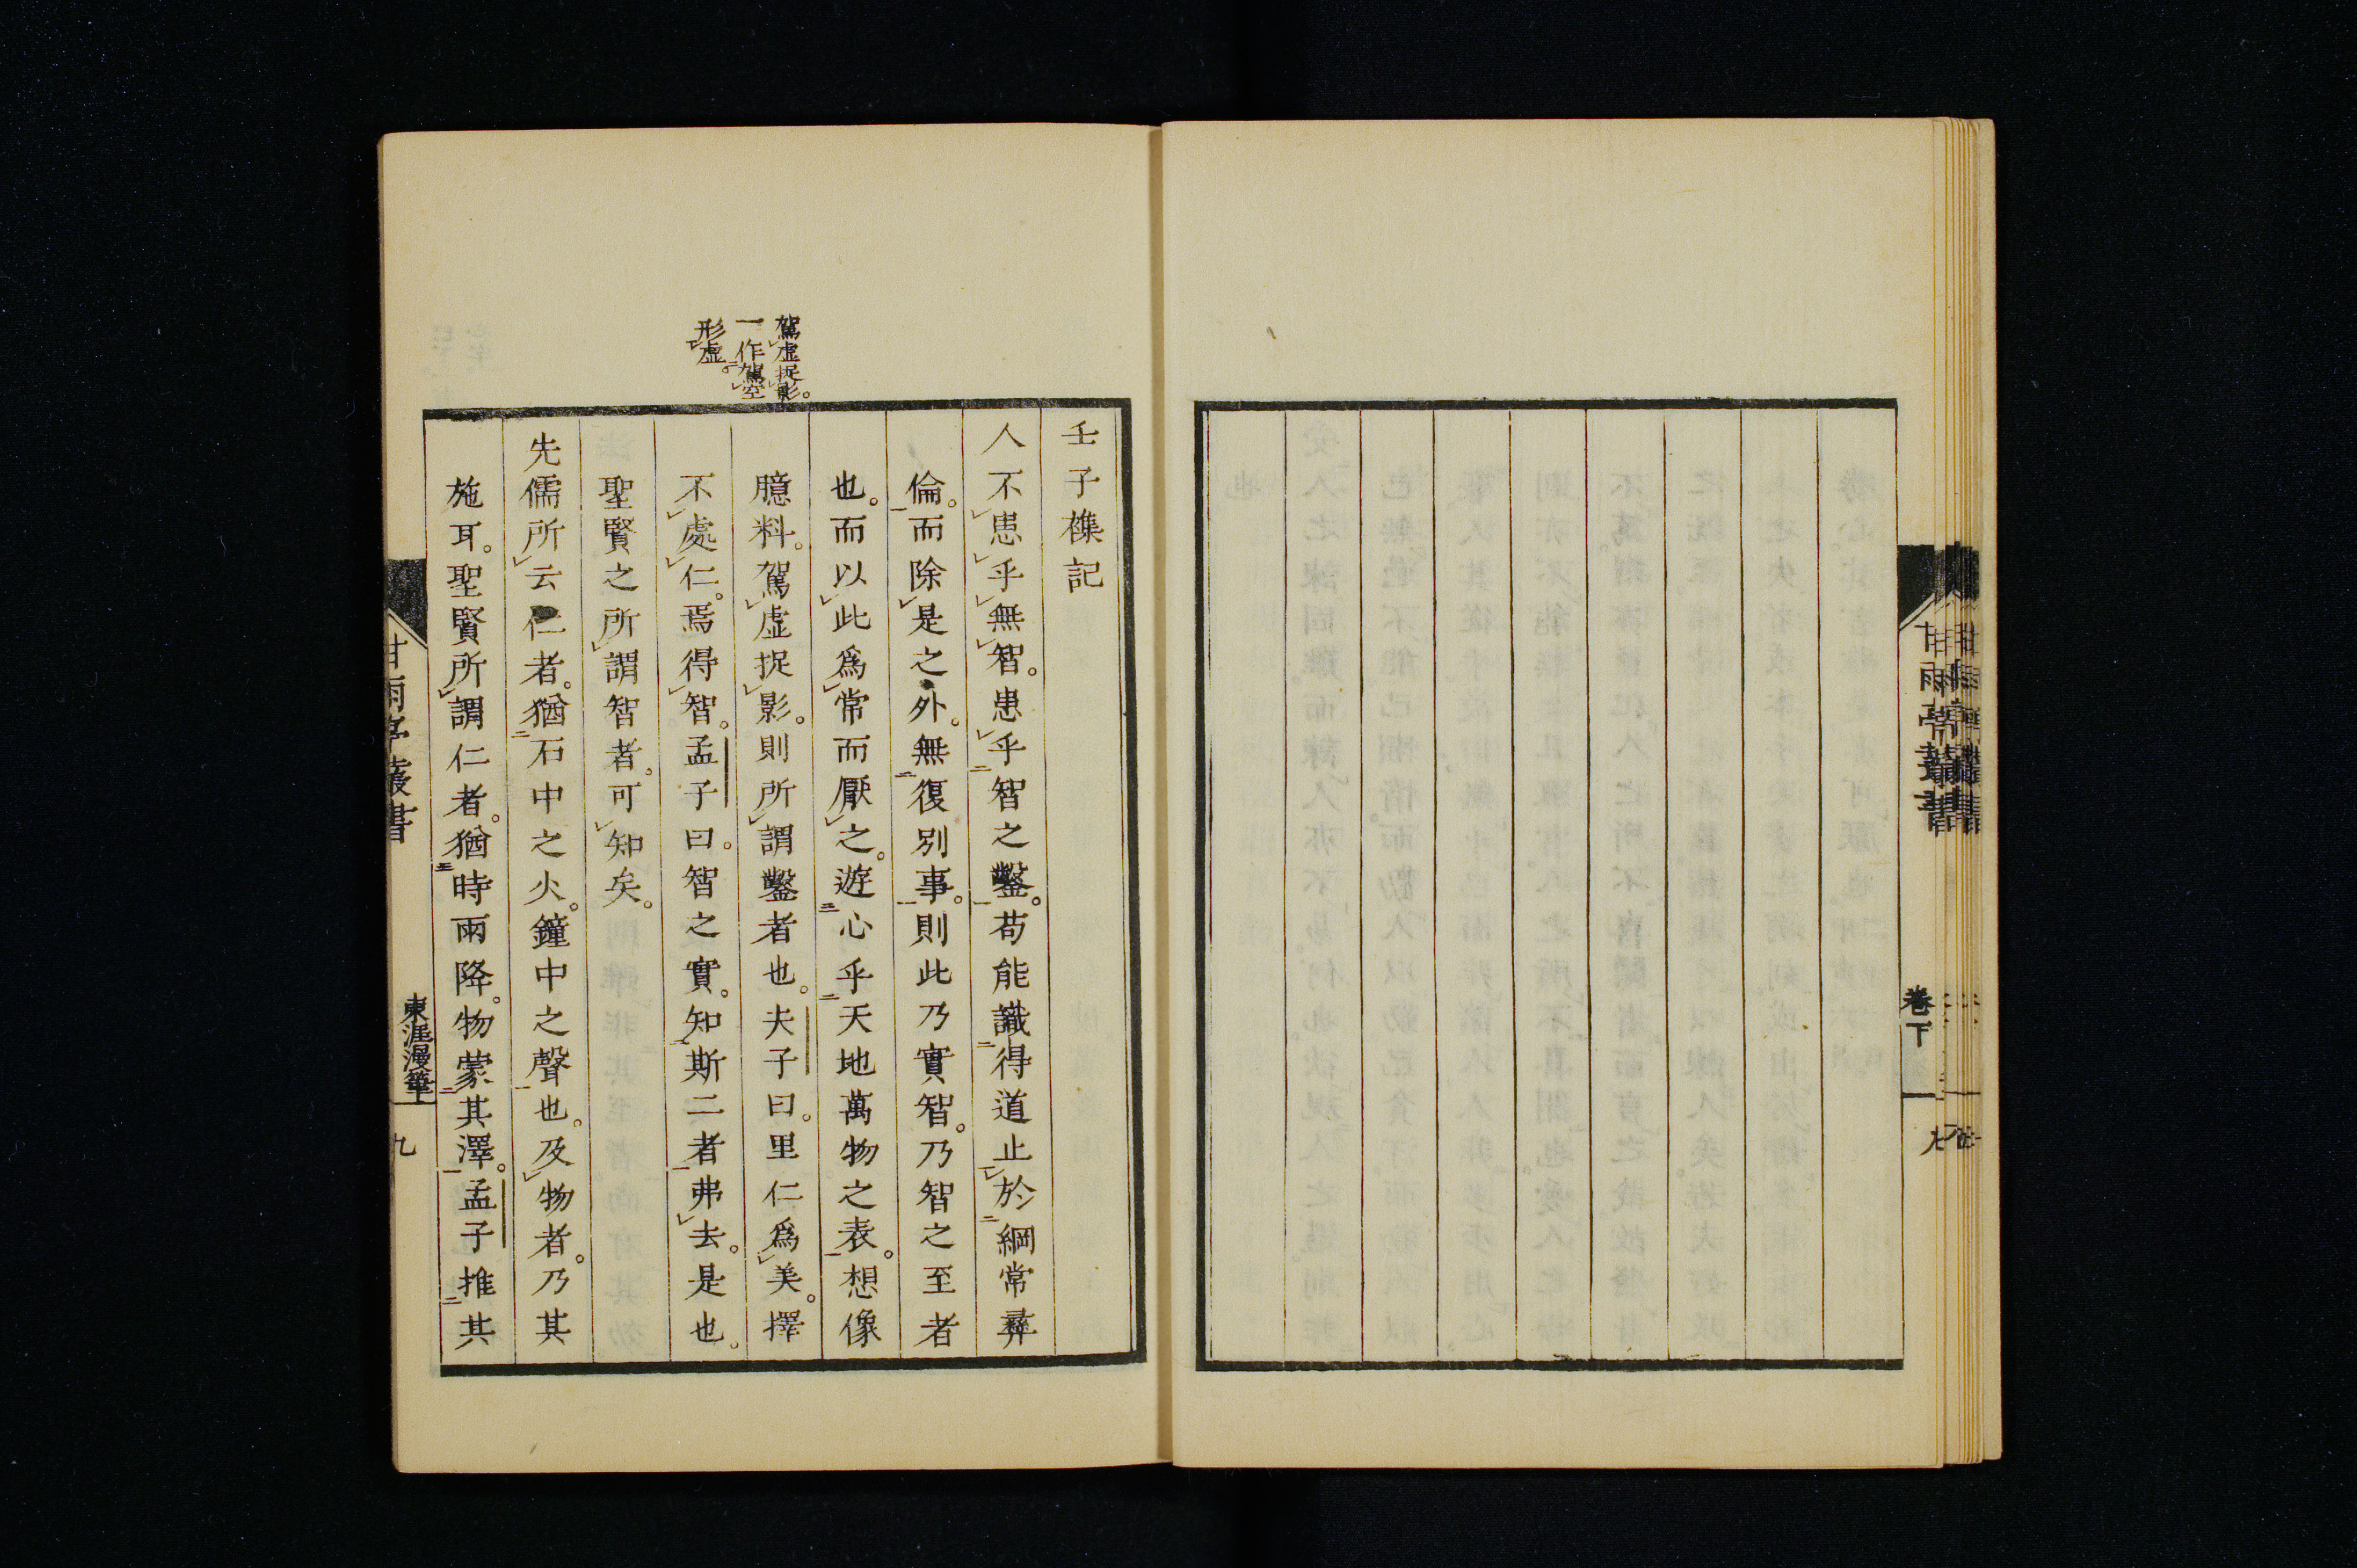 甘雨亭叢書
卷下
九
駕虛捉影。
一作駕空
形虛。
壬子襍記
人不患乎無智。患乎智之鑿。苟能識得道止於綱常彝
倫。而除是之外。無復別事。則此乃實智。乃智之至者
也。而以此爲常而厭之。遊心乎天地萬物之表。想像
臆料。駕虛捉影。則所謂鑿者也。夫子曰。里仁爲美。擇
不處仁。焉得智。孟子曰。智之實。知斯二者弗去。是也。
聖賢之所謂智者。可知矣。
先儒所云仁者。猶石中之火。鐘中之聲也。及物者。乃其
施耳。聖賢所謂仁者。猶時雨降。物蒙其澤。孟子推其
甘雨亭叢書
東涯漫筆
九